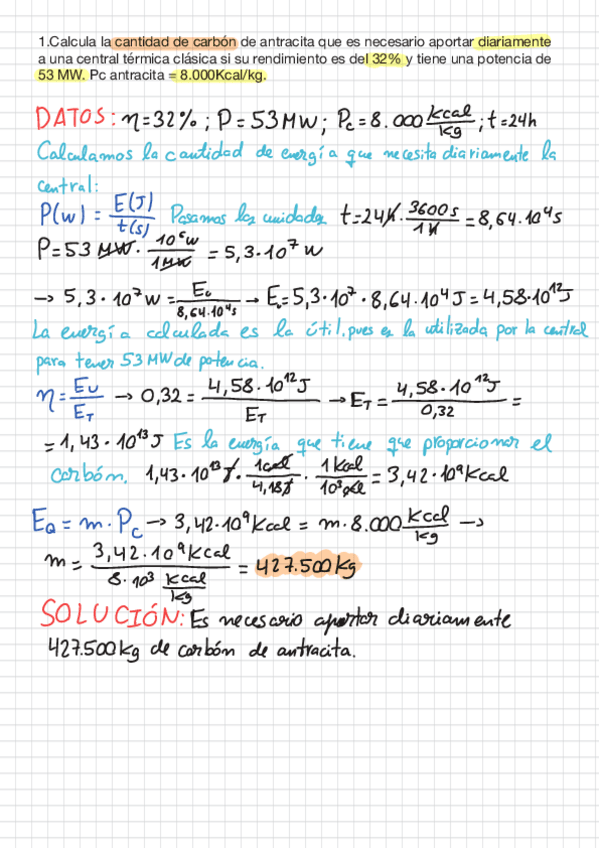 1.Calcula la cantidad de carbón de antracita que es necesario aportar diariamente
a una central térmica clásica si su rendimiento es del 32% y tiene una potencia de
53 MW. Pc antracita = 8.000Kcal/kg.
DATOS: η=32%; P=53MW; Pc=8.000 Kcal/kg; t=24h
Calculamos la cantidad de energía que necesita diariamente la
central:
P(w) = E(J)/t(s) Pasamos las unidades t=24h · 3600s/1h = 8,64·10⁴s
P=53 MW · 10⁶w/1MW = 5,3·10⁷w
→ 5,3·10⁷w = Eu/8,64·10⁴s → Eu=5,3·10⁷·8,64·10⁴J=4,58·10¹²J
La energía calculada es la útil, pues es la utilizada por la central
para tener 53 MW de potencia.
η=Eu/ET → 0,32 = 4,58·10¹²J/ET → ET = 4,58·10¹²J/0,32 =
=1,43·10¹³J Es la energía que tiene que proporcionar el
carbón. 1,43·10¹³J · 1cal/4,18J · 1Kcal/10³cal = 3,42·10⁹Kcal
EQ = m·Pc → 3,42·10⁹Kcal = m·8.000 Kcal/kg →
m = 3,42·10⁹Kcal/8·10³ Kcal/kg = 427.500kg
SOLUCIÓN: Es necesario aportar diariamente
427.500kg de carbón de antracita.